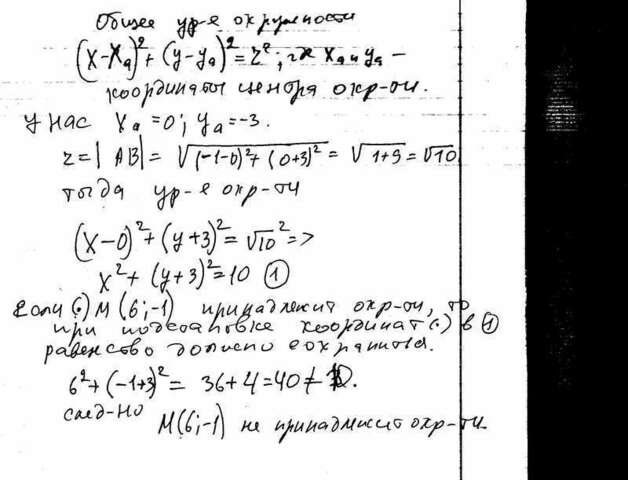 Общее ур-е окружности
(x-xₐ)²+(y-yₐ)²=r²; где xₐ и yₐ –
координаты центра окр-ти.
У нас xₐ=0; yₐ=-3.
r=|AB|=√((-1-0)²+(0+3)²)=√1+9=√10
тогда ур-е окр-ти
(x-0)²+(y+3)²=√10²=>
x²+(y+3)²=10 ①
Если (·) M(6;-1) принадлежит окр-ти, то
при подстановке координат (·) в ①
равенство должно сохраниться.
6²+(-1+3)²=36+4=40≠10.
след-но
M(6;-1) не принадлежит окр-ти.